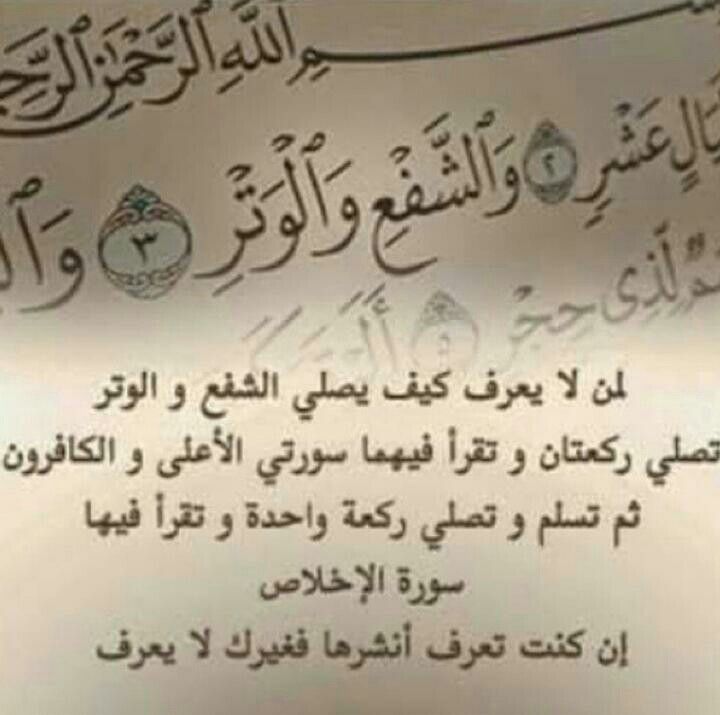 ـسْمِ ٱللَّهِ ٱلرَّحْمَٰنِ ٱلرَّحِـ
ـيَالٍ عَشْرٍ ٢ وَٱلشَّفْعِ وَٱلْوَتْرِ ٣ وَٱلَّـ
ـمٌ لِّذِى حِجْرٍ ٥ أَلَمْ
لمن لا يعرف كيف يصلي الشفع و الوتر
تصلي ركعتان و تقرأ فيهما سورتي الأعلى و الكافرون
ثم تسلم و تصلي ركعة واحدة و تقرأ فيها
سورة الإخلاص
إن كنت تعرف أنشرها فغيرك لا يعرف